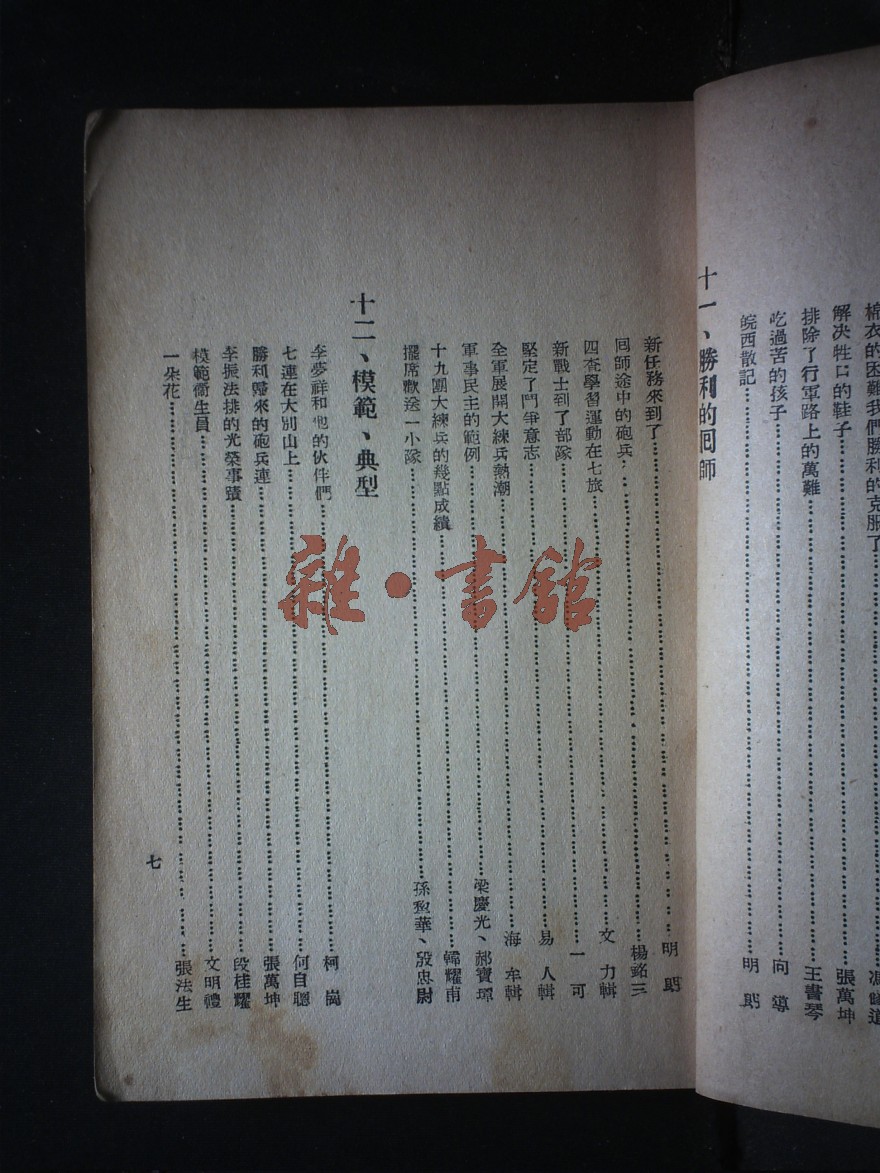 棉衣的困難我們勝利的克服了
解決牲口的鞋子……張萬坤
排除了行軍路上的萬難……王書琴
吃過苦的孩子……向導
皖西散記……明
十一、勝利的囘師
新任務來到了……明
囘師途中的砲兵……楊銘三
四查學習運動在七旅……文力輯
新戰士到了部隊……一可
堅定了鬥爭意志……易人輯
全軍展開大練兵熱潮……海牟輯
軍事民主的範例……梁慶光、郝寶璋
十九團大練兵的幾點成績……韓耀甫
擺席歡送一小隊……孫華、殷忠尉
十二、模範、典型
李夢祥和他的伙伴們……柯崗
七連在大別山上……何自聰
勝利歸來的砲兵連……張萬坤
李振法排的光榮事蹟……段桂耀
模範衞生員……文明禮
一朵花……張法生
七
雜·書館